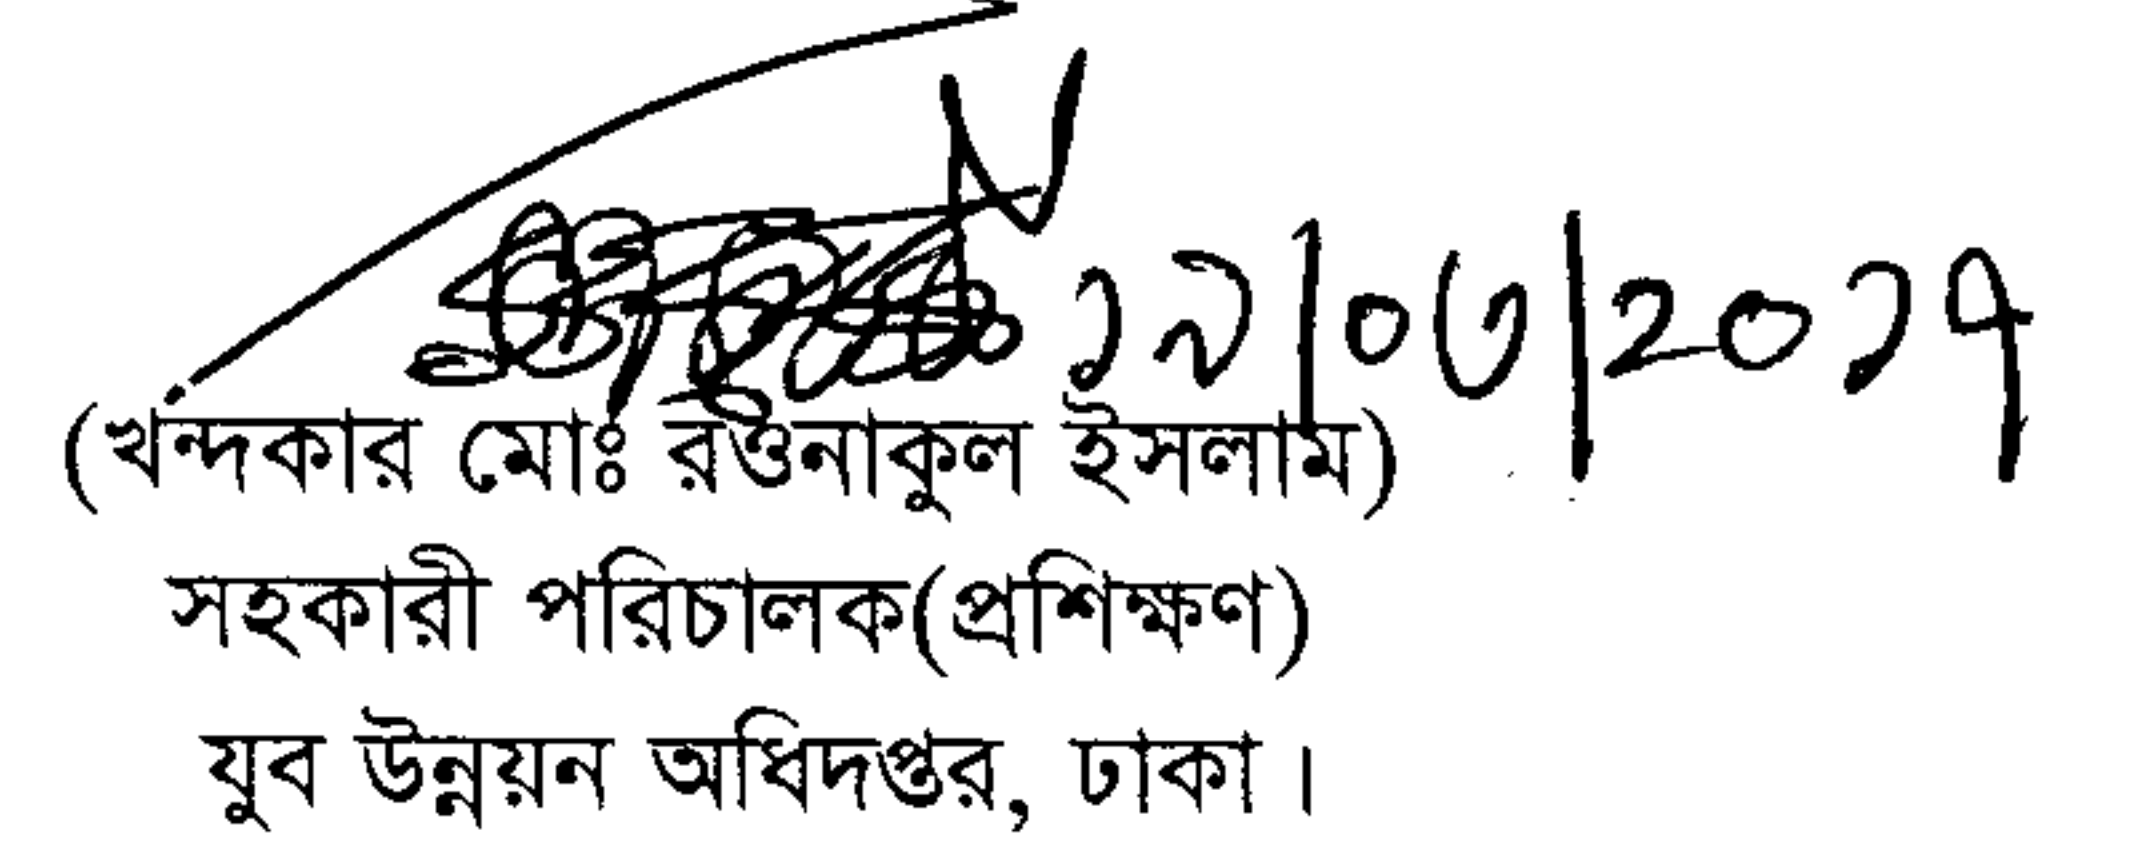 ১৯|০৩|২০১৭
(খন্দকার মোঃ রওনাকুল ইসলাম)
সহকারী পরিচালক(প্রশিক্ষণ)
যুব উন্নয়ন অধিদপ্তর, ঢাকা।